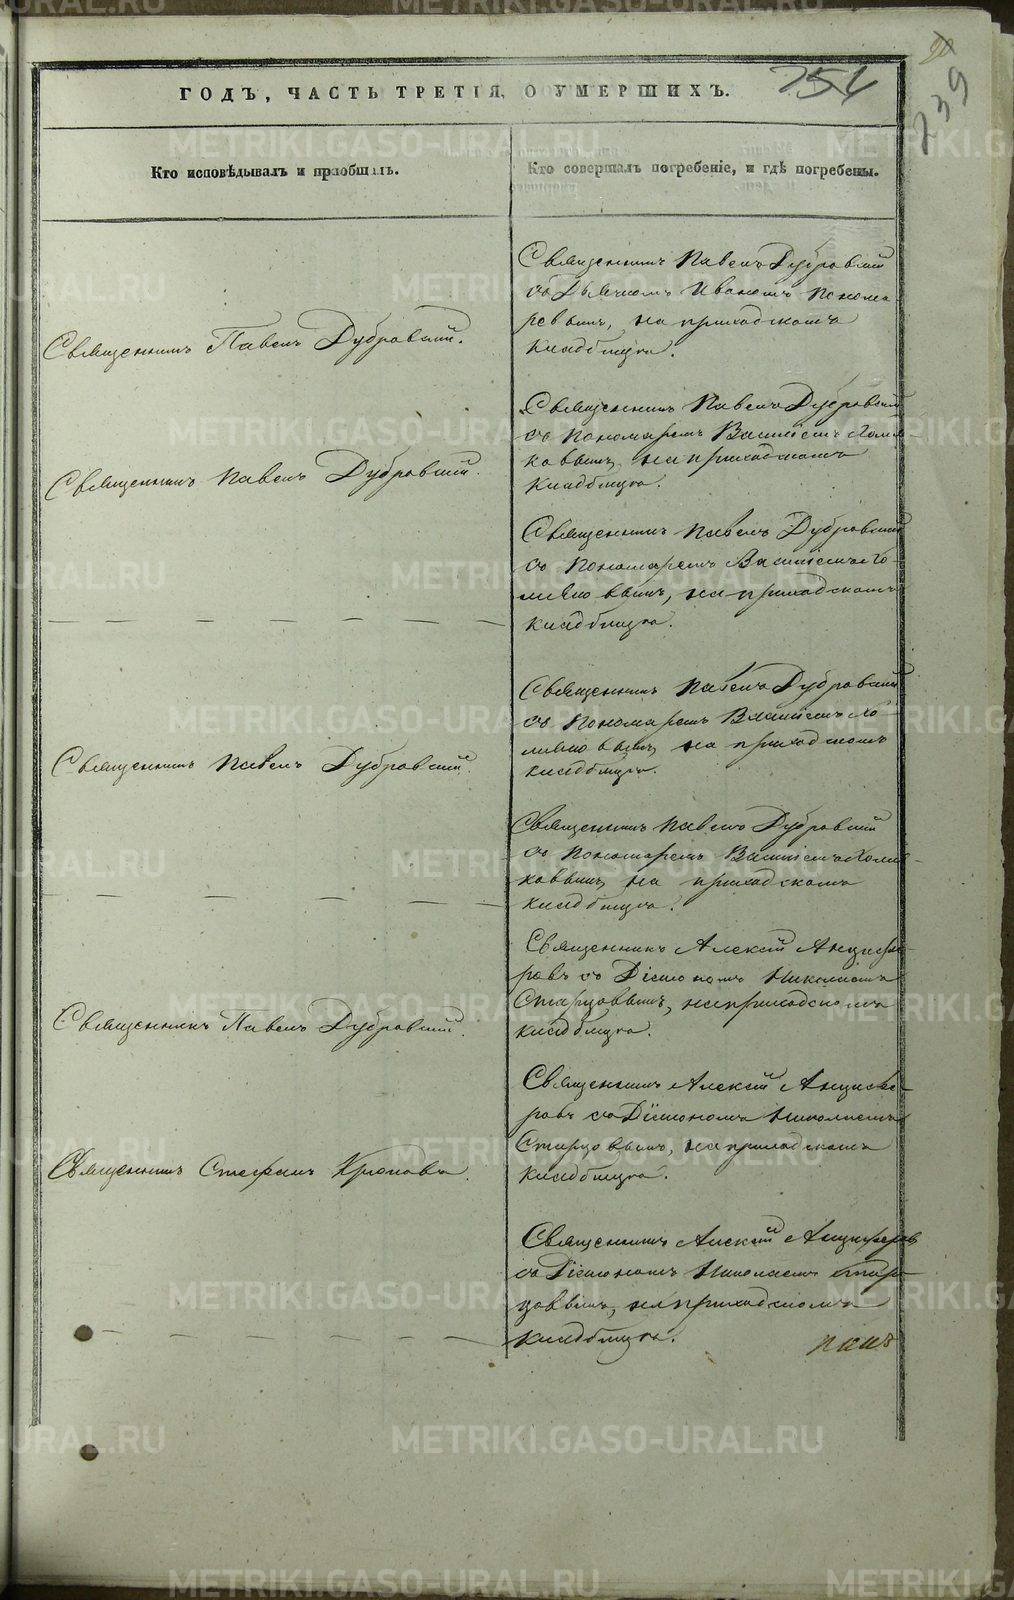 ГОДЪ, ЧАСТЬ ТРЕТІЯ, О УМЕРШИХЪ.
754
239
Кто исповѣдывалъ и пріобщалъ.
Кто совершалъ погребеніе, и гдѣ погребены.
Священникъ Павелъ Дубровскій
съ Дьячкомъ Иваномъ Понома-
ревымъ, на приходскомъ
кладбищѣ.
Священникъ Павелъ Дубровскій.
Священникъ Павелъ Дубровскій
съ Пономаремъ Василіемъ Холмя-
ковымъ, на приходскомъ
кладбищѣ.
Священникъ Павелъ Дубровскій.
Священникъ Павелъ Дубровскій
съ Пономаремъ Василіемъ
на приходскомъ
кладбищѣ.
Священникъ Павелъ Дубровскій
съ Пономаремъ Василіемъ
на приходскомъ
кладбищѣ.
Священникъ Павелъ Дубровскій.
Священникъ Павелъ Дубровскій
съ Пономаремъ Василіемъ
на приходскомъ
кладбищѣ.
Священникъ Алексій Анцифе-
ровъ съ Діакономъ Николаемъ
Старцовымъ, на приходскомъ
кладбищѣ.
Священникъ Павелъ Дубровскій.
Священникъ Алексій Анцифе-
ровъ съ Діакономъ Николаемъ
Старцовымъ, на приходскомъ
кладбищѣ.
Священникъ Стефанъ
Священникъ Алексій Анциферовъ
съ Діакономъ Николаемъ Стар-
цовымъ, на приходскомъ
кладбищѣ.
METRIKI.GASO-URAL.RU